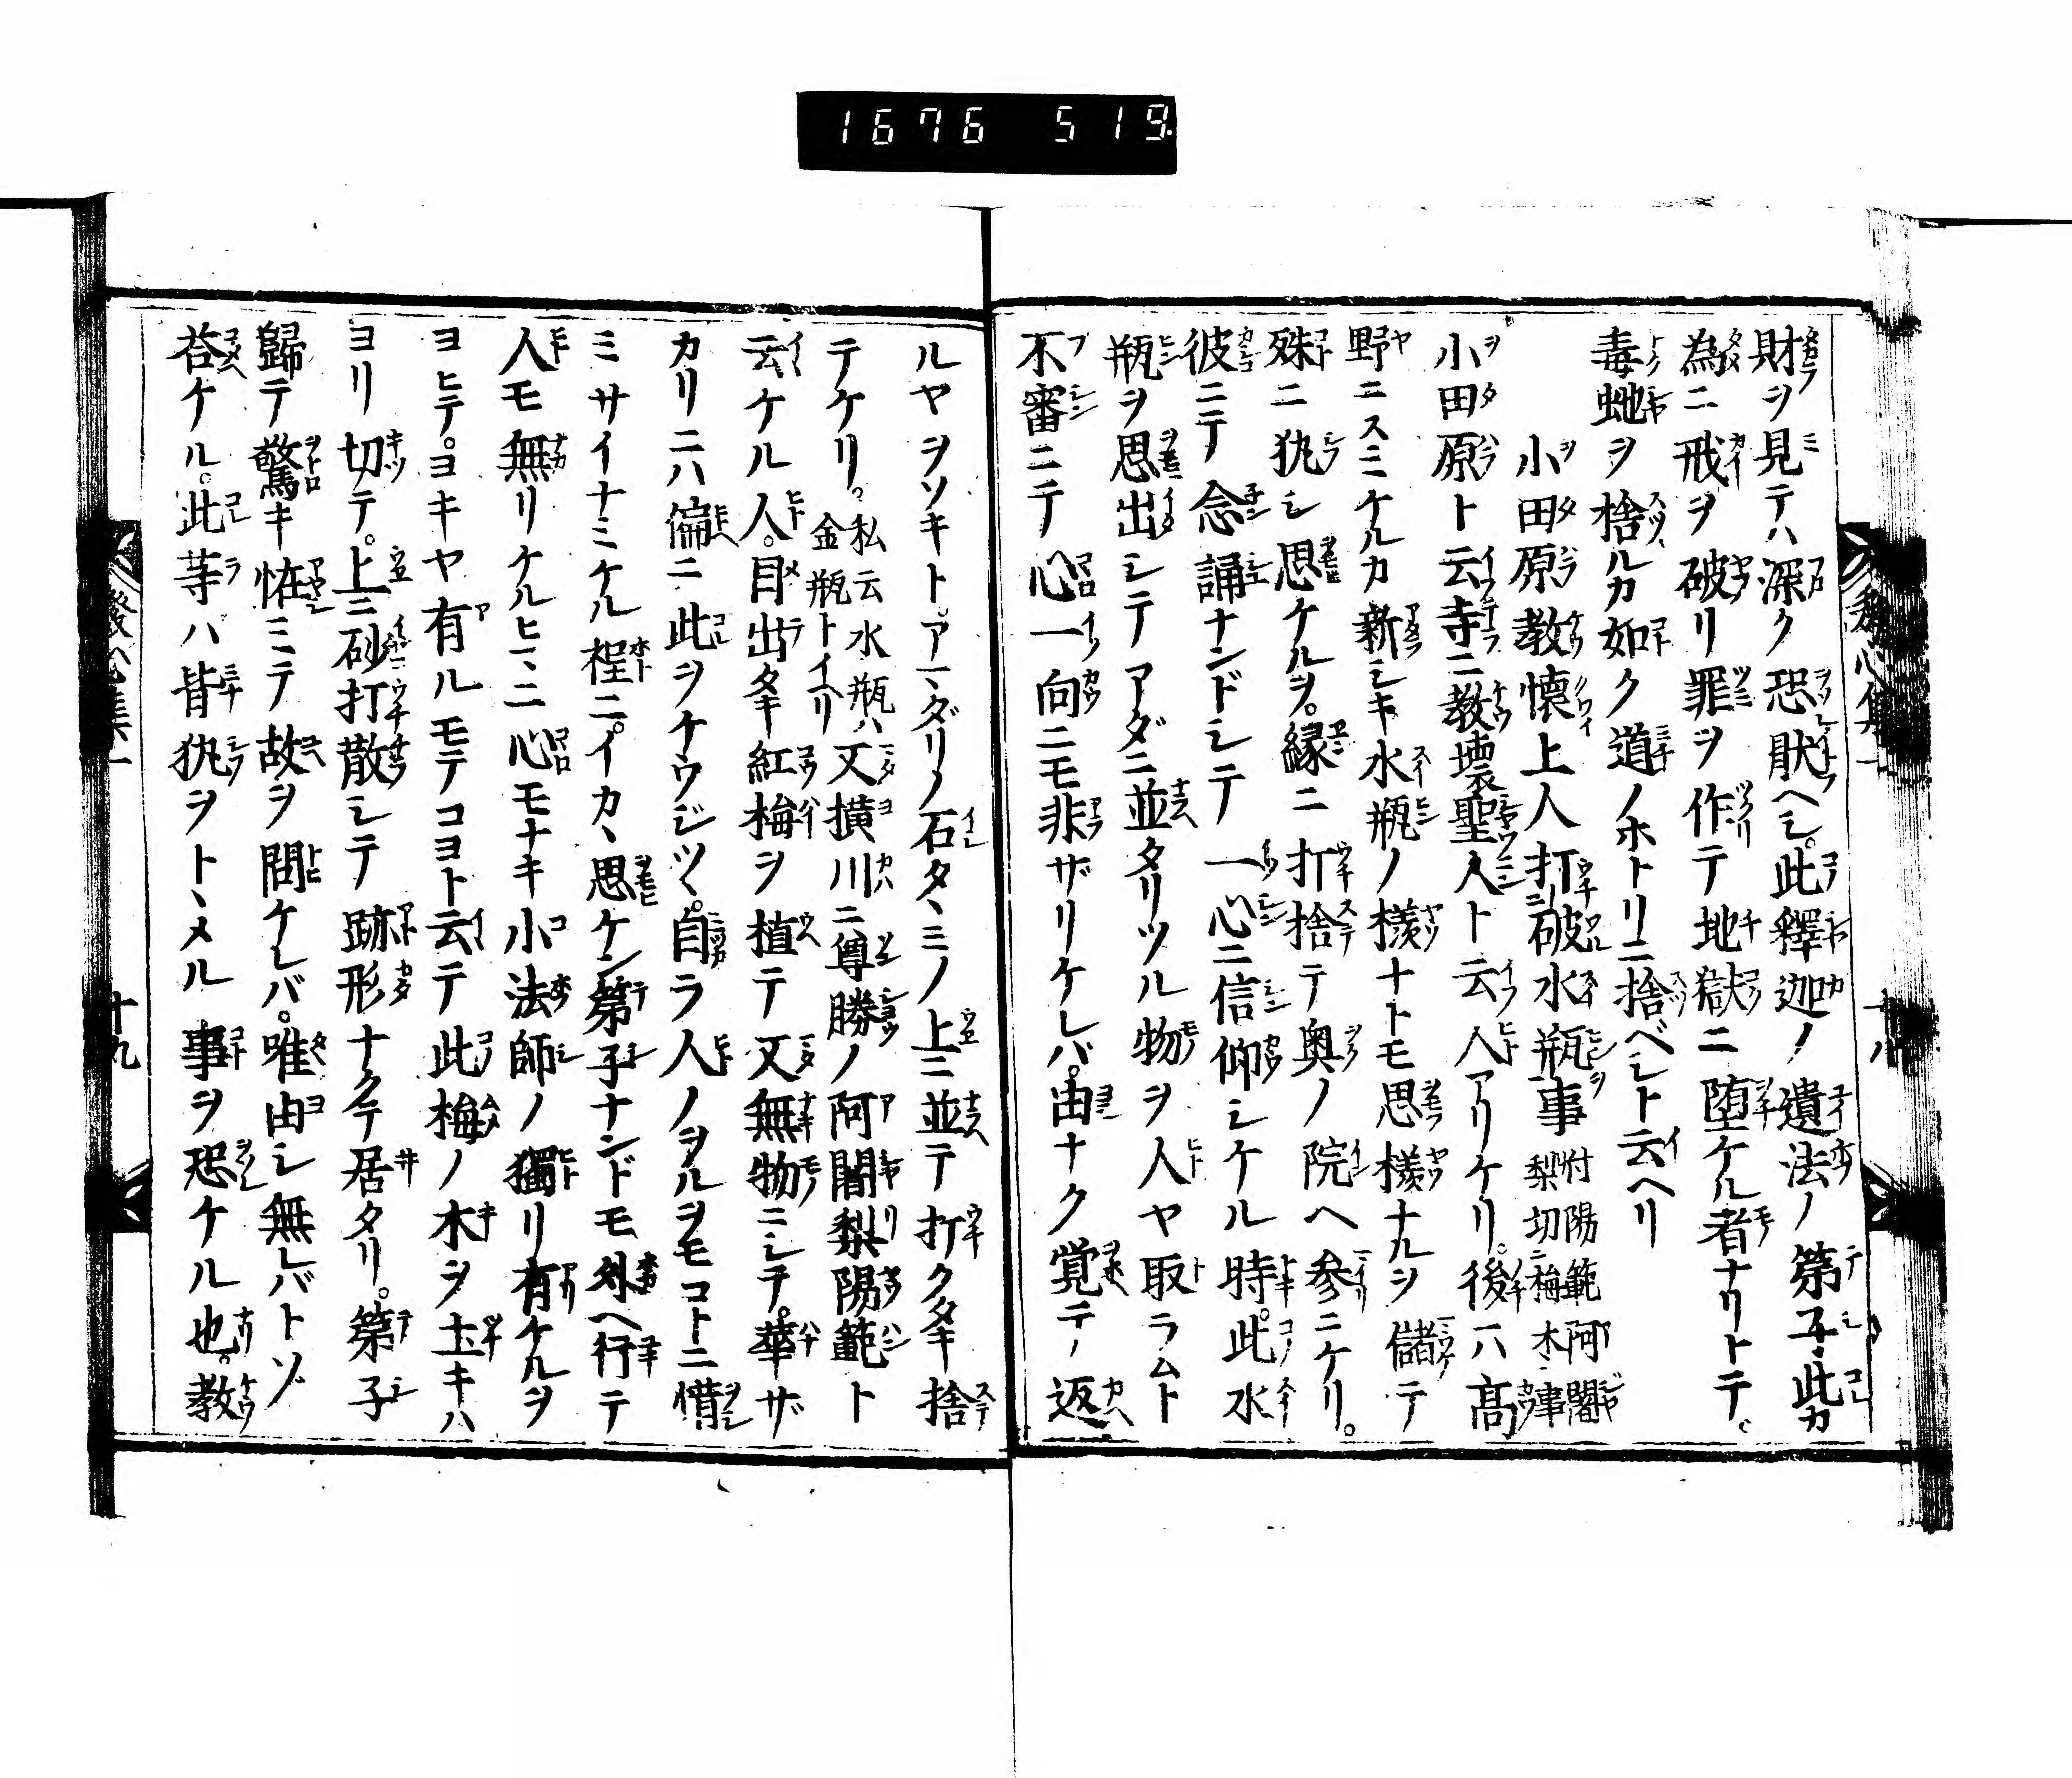 1676 519
財ヲ見テハ深ク恐猒ヘシ。此釋迦ノ遺法ノ第子此カ
為ニ戒ヲ破リ罪ヲ作テ地獄ニ堕ケル者ナリトテ。
毒虵ヲ捨ルカ如ク道ノホトリニ捨ベシト云ヘリ
小田原教懐上人打破水瓶事 付陽範阿闍梨切梅木事
小田原ト云寺ニ教壊聖人ト云人アリケリ。後ハ高
野ニスミケルカ新シキ水瓶ノ様ナトモ思様ナルヲ儲テ
殊ニ犱シ思ケルヲ。縁ニ打捨テ奥ノ院ヘ参ニケリ。
彼ニテ念誦ナンドシテ一心ニ信仰シケル時。此水
瓶ヲ思出シテアダニ並タリツル物ヲ人ヤ取ラムト
不審ニテ心一向ニモ非ザリケレバ。由ナク覚テ返
ルヤヲソキト。アマダリノ石タヽミノ上ニ並テ打クタキ捨
テケリ。私云水瓶ハ金瓶トイヘリ又横川ニ尊勝ノ阿闍梨陽範ト
云ケル人。目出タキ紅梅ヲ植テ又無物ニシテ。華ザ
カリニハ偏ニ此ヲケウジツヽ。自ラ人ノヲルヲモコトニ惜
ミサイナミケル程ニ。イカヽ思ケン第子ナンドモ外ヘ行テ
人モ無リケルヒマニ心モナキ小法師ノ獨リ有ケルヲ
ヨヒテ。ヨキヤ有ルモテコヨト云テ此梅ノ木ヲ土キハ
ヨリ切テ。上ニ砂打散シテ跡形ナクテ居タリ。第子
歸テ驚キ恠ミテ故ヲ問ケレバ。唯由シ無レバトゾ
荅ケル。此等ハ皆犱ヲトヽメル事ヲ恐ケル也。教
發心集一
十九